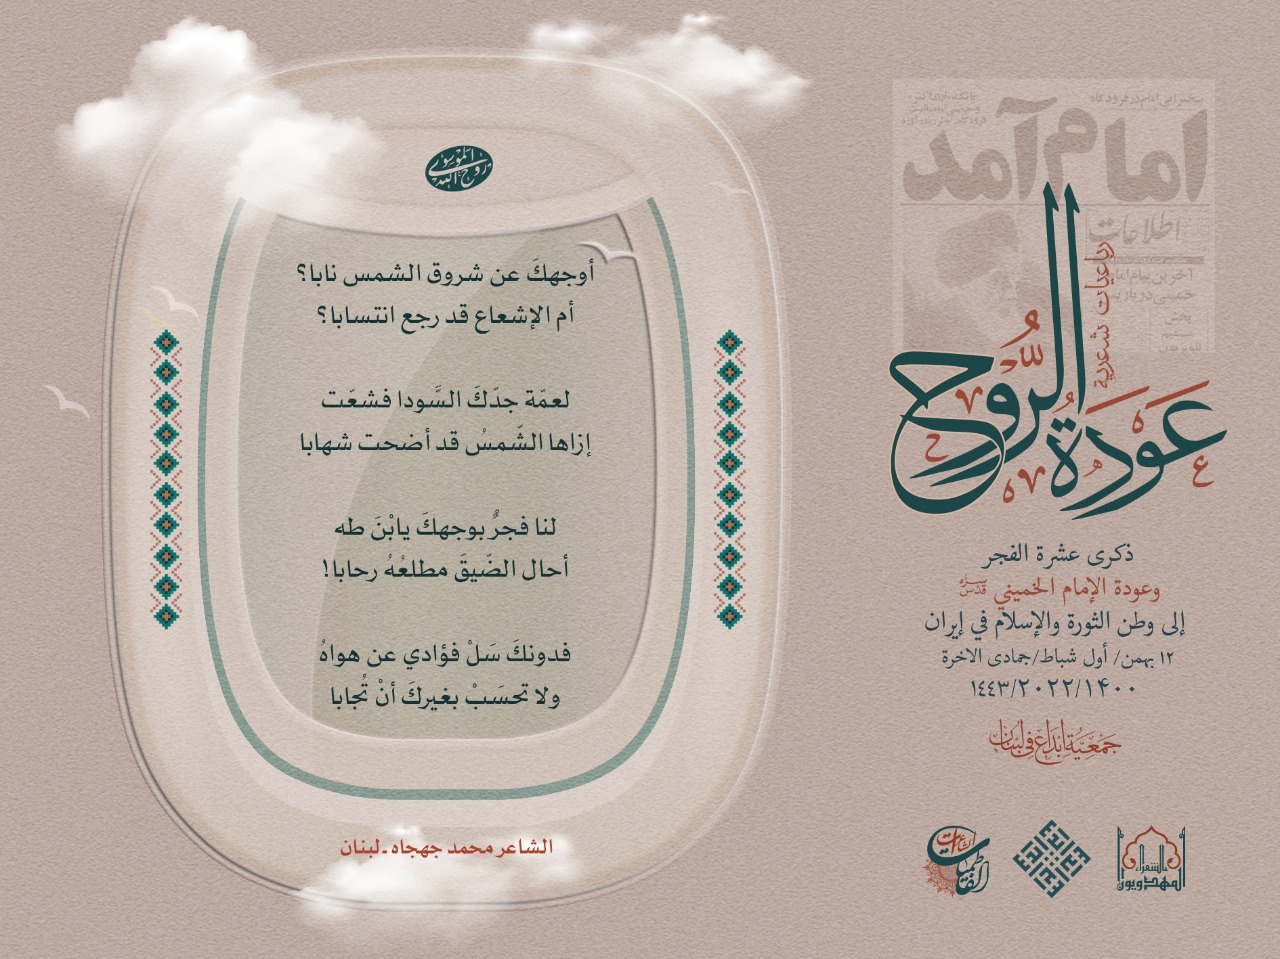 روح الله الموسوي
أوجهكَ عن شروق الشمس نابا؟
أم الإشعاع قد رجع انتسابا؟
لعمّة جدّكَ السَّودا فشعّت
إزاها الشّمسُ قد أضحت شهابا
لنا فجرٌ بوجهكَ يابْنَ طه
أحال الضّيقَ مطلعُهُ رحابا!
فدونكَ سَلْ فؤادي عن هواهُ
ولا تحسَبْ بغيركَ أنْ تُجابا
الشاعر محمد جهجاه - لبنان
امام آمد
اطلاعات
آخرین پیام امام
رباعيات شعرية
عودة الرُّوح
ذكرى عشرة الفجر
وعودة الإمام الخميني قدّس سرّه
إلى وطن الثورة والإسلام في إيران
١٢ بهمن/ أول شباط/جمادى الاخرة
١٤٤٣/٢٠٢٢/١۴٠٠
جمعيّة إبداع في لبنان
الشعراء المهدويون